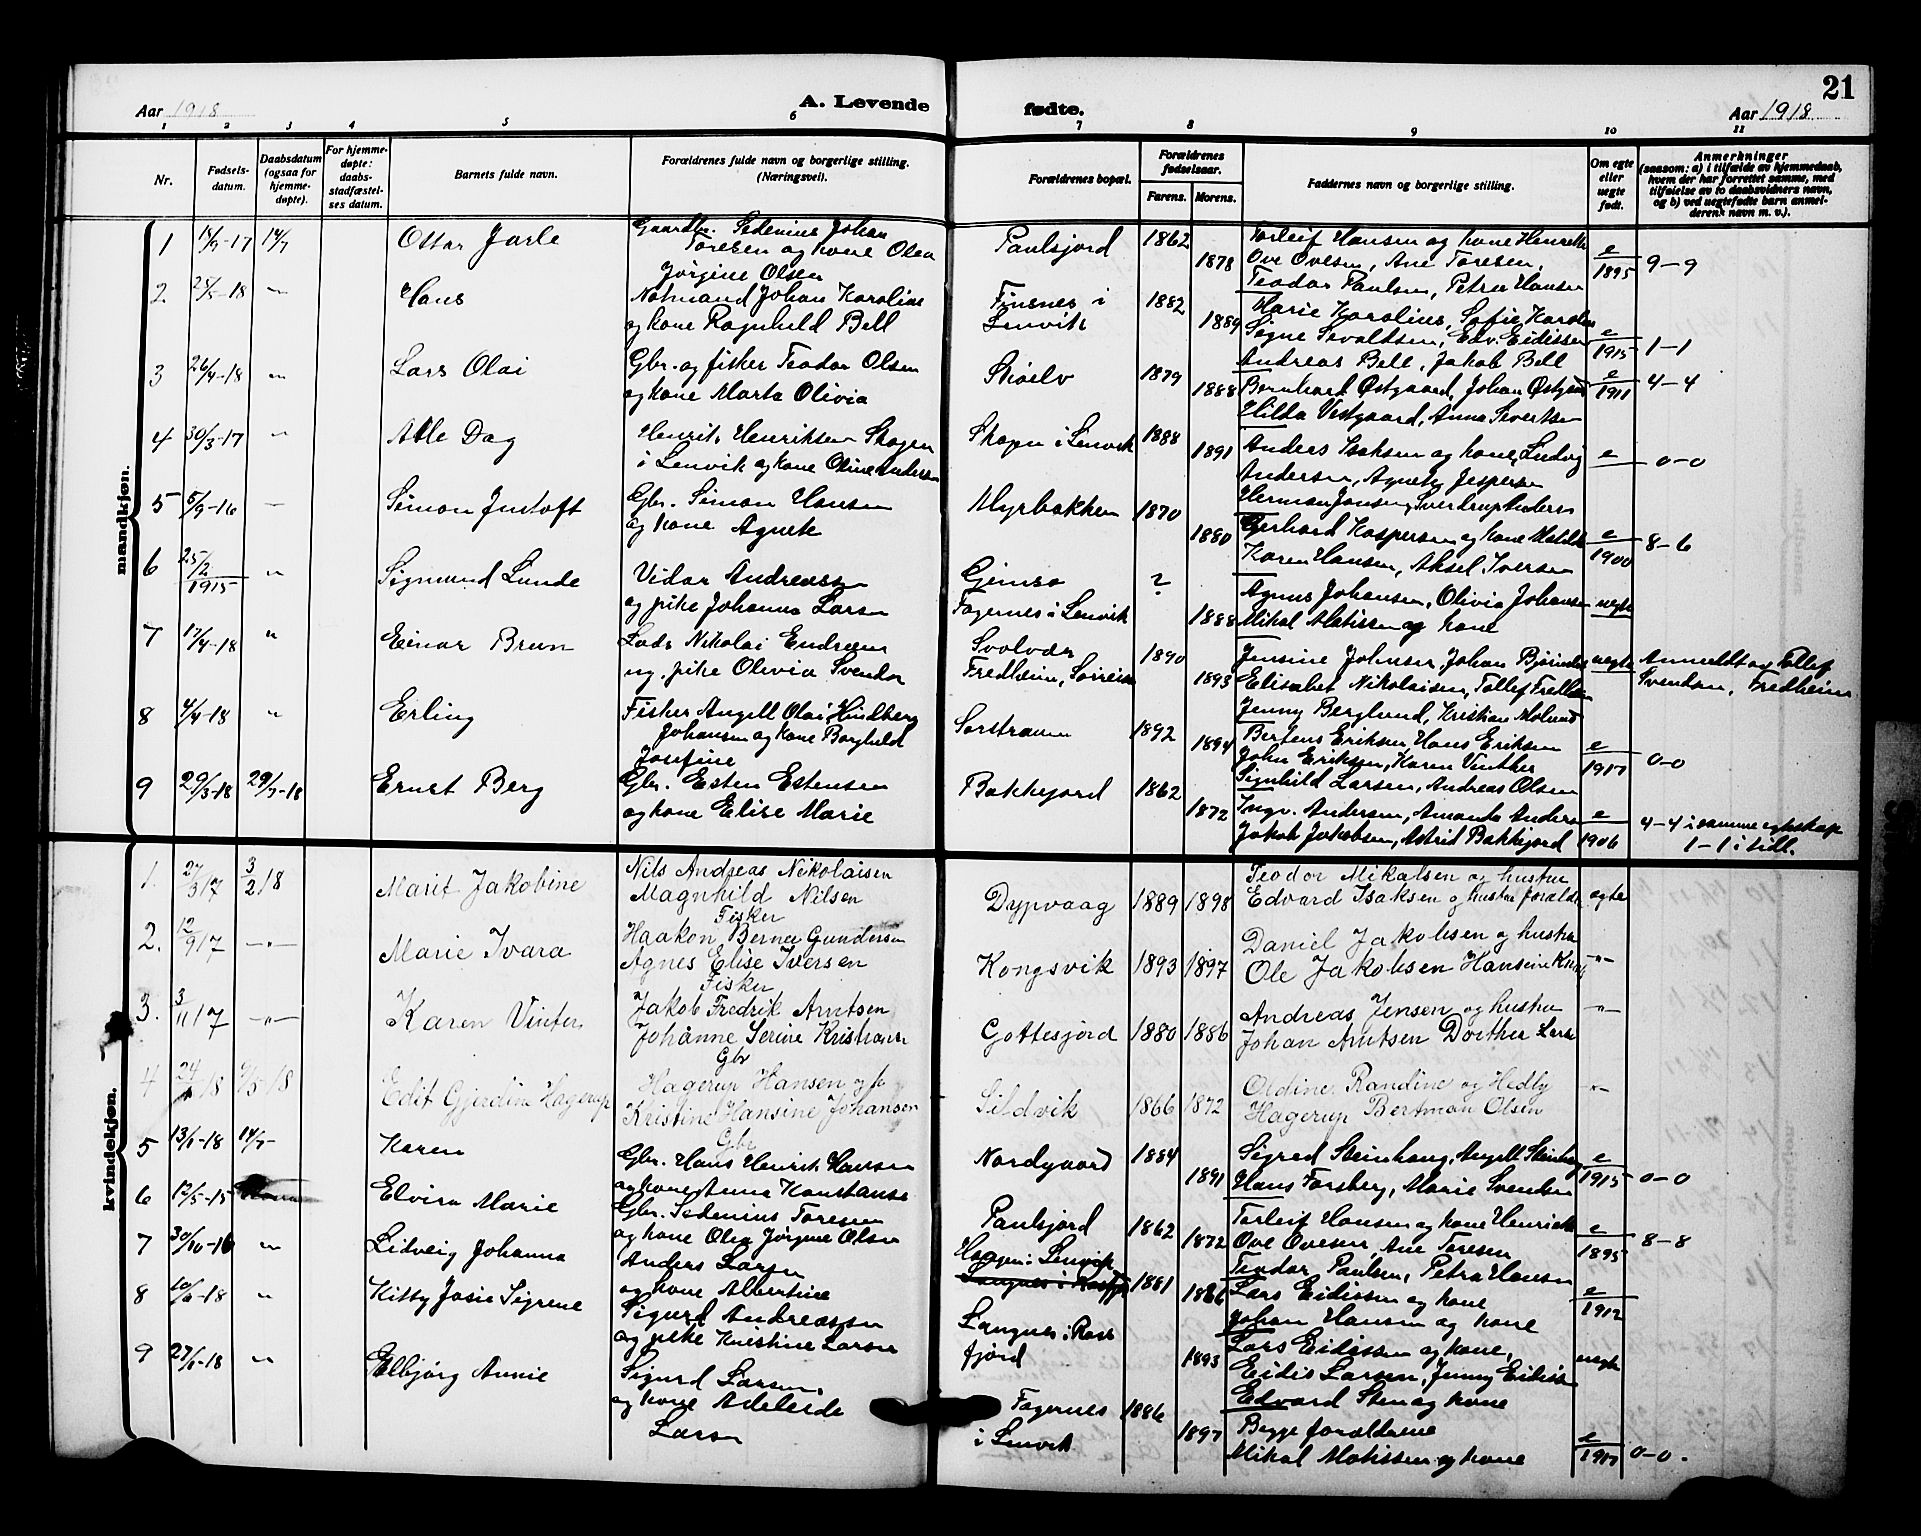 21
Aar 1918
A. Levende
fødte.
Aar 1918
1 2 3 4 5 6 7 8 9 10 11
Nr.
Fødsels-
datum.
Daabsdatum
(ogsaa for
hjemme-
døpte).
For hjemme-
døpte:
daabs-
stadfæstel-
ses datum.
Barnets fulde navn.
Forældrenes fulde navn og borgerlige stilling.
(Næringsvei).
Forældrenes bopæl.
Forældrenes
fødselsaar.
Farens. Morens.
Faddernes navn og borgerlige stilling.
Om egte
eller
uegte
født.
Anmerkninger
(saasom: a) i tilfælde av hjemmedaab,
hvem der har forrettet samme, med
tilføielse av to daabsvidners navn,
og b) ved uegtefødte barn anmel-
derens navn m. v.).
mandkjøn.
1 14/7 Ottar Jarle
Gaardbr. Sedenius Johan
Toresen og kone Olea
Jørgine Olsen
Paulsjord 1862 1878
Torleif Hansen og kone Henrikke
Ove Ovesen, Ane Toresen,
Teodor Paulsen, Petra Hansen
e 1895 9-9
2. 25/5-18 " Hans
Notmand Johan Karolius
og kone Ragnhild Bell
Finsnes i
Lenvik 1882 1889
Marie Karolius, Sofie Karolius
Signe Sivaldsen, Edv. Eidissen
Andreas Bell, Jakob Bell
e 1915 1-1
3 26/4-18 " Lars Olai
Gbr. og fisker Teodor Olsen
og kone Marta Olivia
Skøelv 1879 1888
Bernhard Østgaard, Johan Østgaard
Hilda Vestgaard, Anna Sivertsen
e 1911 4-4
4 30/3-17 " Atle Dag
Henrik Henriksen Skogen
i Lenvik og kone Oline Andersen
Skogen i Lenvik 1888 1891
Anders Isaksen og kone, Ludvig
Andersen, Agnete Jespersen
Herman Jensen, Sverdrup Andersen
e 0-0
5 5/9-16 - Simon Justoft
Gbr. Simon Hansen
og kone Agnete
Myrbakken 1870 1880
Gerhard Kaspersen og kone Matilde
Karen Hansen, Aksel Iversen
e 1900 8-6
6 25/2 1915 " Sigmund Lunde
Vidar Andreassen
og pike Johanna Larsen
Gimsø
Fagernes i Lenvik ? 1888
Agnus Johansen, Olivia Johansen
Mikal Matissen og kone
uegte
7 17/4-18 " Einar Brun
Lods Nikolai Endresen
ug. pike Olivia Svendsen
Svolvær
Fredheim, Sørreisa 1890 1893
Jensine Johnsen, Johan Bjørinder
Elisabet Nikolaisen, Tollef
Jenny Berglund, Kristian Moland
uegte Anmeldt av Tollef
Svendsen, Fredheim
8 4/4-18 " Erling
Fisker Angell Olai Hindberg
Johansen og kone Borghild
Josefine
Sørstraumen 1892 1894
Bertens Eriksen, Hans Eriksen
John Eriksen, Karen Vinther
Signhild Larsen, Andreas Olsen
e 1917 0-0
9 29/3-18 29/7-18 Ernst Berg
Gbr. Esten Estensen
og kone Elise Marie
Bakkejord 1862 1872
Ingv. Andersen, Amanda Andersen
Jakob Jakobsen, Astrid Bakkejord
e 1906 4-4 i samme egteskap
1-1 i tidl.
kvindekjøn.
1. 27/3 17 3/2 18 Marit Jakobine
Nils Andreas Nikolaisen
Magnhild Nilsen
Fisker
Dypvaag 1889 1898
Teodor Mikalsen og hustru
Edvard Isaksen og hustru forældr
egte
2. 12/9 17 -"- Marie Ivara
Haakon Berner Gundersen
Agnes Elise Iversen
Fisker
Kongsvik 1893 1897
Daniel Jakobsen og hustru
Ole Jakobsen Hansine
-"-
3. 3/11 17 -"- Karen Vinter
Jakob Fredrik Arntsen
Johanne Serine Kristiansen
Gbr
Gottesjord 1880 1886
Andreas Jensen og hustru
Johan Arntsen Dorther Larsen
-"-
4 24/ 18 9/5 18 Edit Gjerdine Hagerup
Hagerup Hansen og
Kristine Hansine Johansen
Gbr
Sildvik 1866 1872
Ordine Randine og Hedly
Hagerup Bertman Olsen
-"-
5 13/1-18 14/7- Karen
Gbr. Hans Henrik Hansen
og kone Anna Konstanse
Nordgaard 1884 1891
Sigred Steinhaug, Angell Steinhaug
Hans Forsberg, Marie Svendsen
e 1915 0-0
6 12/5-15 Elvira Marie
Gbr. Sedenius Toresen
og kone Olea Jørgine Olsen
Paulsjord 1862 1872
Torleif Hansen og kone Henrikke
Ove Ovesen, Ane Toresen
Teodor Paulsen, Petra Hansen
e 1895 8-8
7 30/10-16 " Lidveig Johanna
Anders Larsen
og kone Albertine
Hagen i Lenvik
Langnes i Rosfjo 1881 1886
Lars Eidissen og kone
Johan Hansen og kone
e 1912
8 " Kitty Josie Sigrene
Sigurd Andreassen
og pike Kristine Larsen
Langnes i Ross
fjord 1893
Lars Eidissen og kone,
Eidis Larsen, Jenny Eidissen
Edvard Sten og kone
uegte
9 27/1-18 " Elbjørg Annie
Sigurd Larsen,
og kone Adeleide
Larsen
Fagernes
i Lenvik 1886 1897
Begge forældrene
Mikal Matissen og kone
e 1917 0-0.